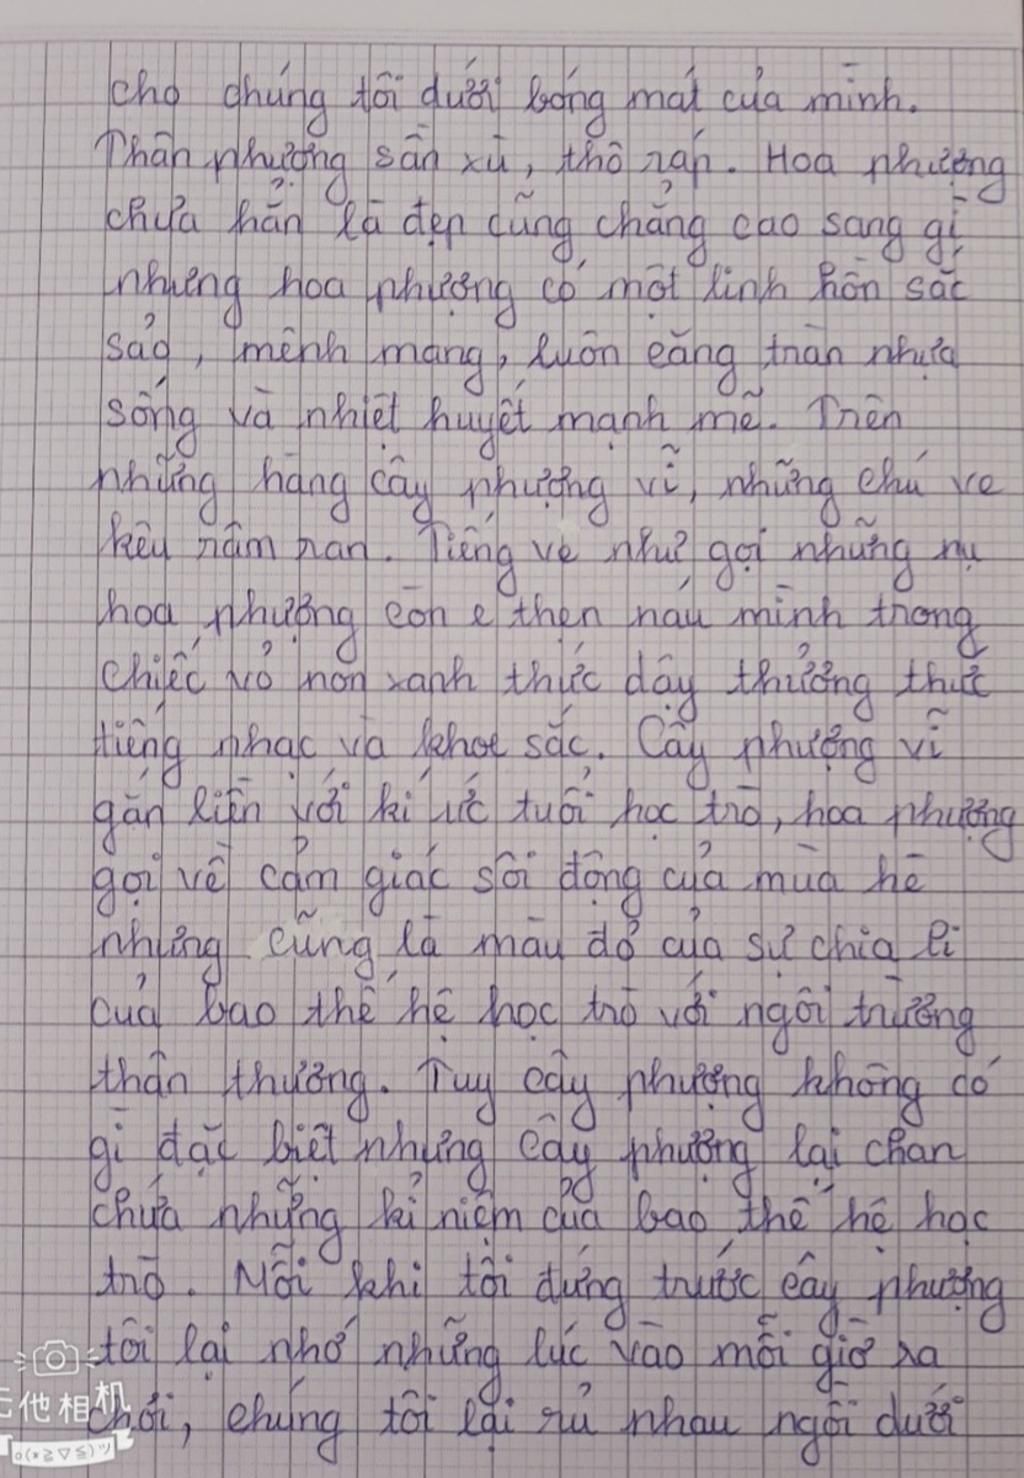 cho chúng tôi dưới bóng mát của mình.
Thân phượng sần xù, thô ráp. Hoa phượng
chưa hẳn là đẹp cũng chẳng cao sang gì
nhưng hoa phượng có một linh hồn sắc
sảo, mênh mang, luôn căng tràn nhựa
sống và nhiệt huyết mạnh mẽ. Trên
những hàng cây phượng vĩ, những chú ve
kêu râm ran. Tiếng ve như gọi những nụ
hoa phượng còn e thẹn náu mình trong
chiếc vỏ non xanh thức dậy thưởng thức
tiếng nhạc và khoe sắc. Cây phượng vĩ
gắn liền với kí ức tuổi học trò, hoa phượng
gọi về cảm giác sôi động của mùa hè
nhưng cũng là màu đỏ của sự chia li
của bao thế hệ học trò với ngôi trường
thân thương. Tuy cây phượng không có
gì đặc biệt nhưng cây phượng lại chan
chứa những kỉ niệm của bao thế hệ học
trò. Mỗi khi tôi đứng trước cây phượng
tôi lại nhớ những lúc vào mỗi giờ ra
chơi, chúng tôi lại rủ nhau ngồi dưới
他相机
o(*≧▽≦)ツ